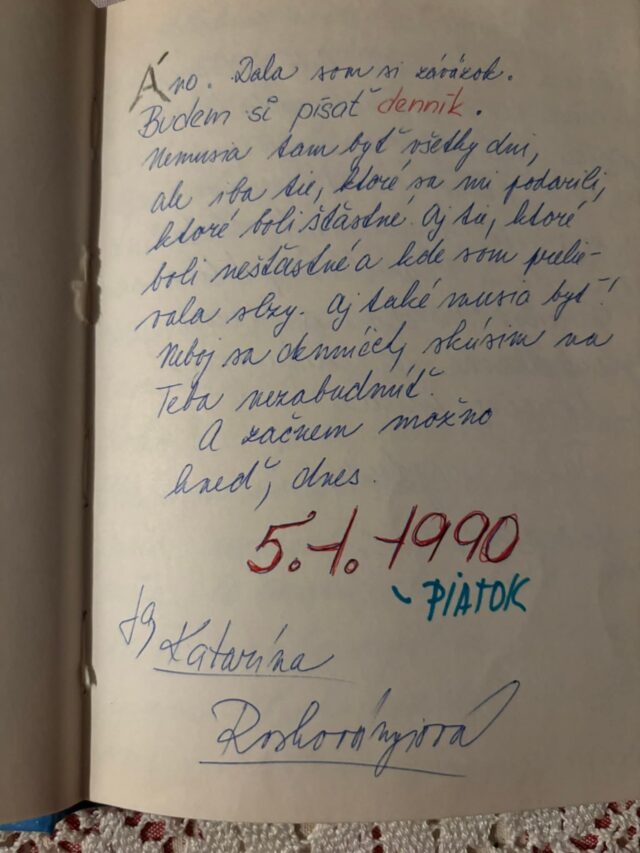 Áno. Dala som si záväzok.
Budem si písať denník.
Nemusia tam byť všetky dni,
ale iba tie, ktoré sa mi podarili,
ktoré boli šťastné. Aj tie, ktoré
boli nešťastné a kde som prelie-
vala slzy. Aj také musia byť!
Neboj sa denníčč, skúsim na
Teba nezabudnúť.
A začnem možno
hneď, dnes.
5.1.1990
- PIATOK
Katarína
Roskoványiová